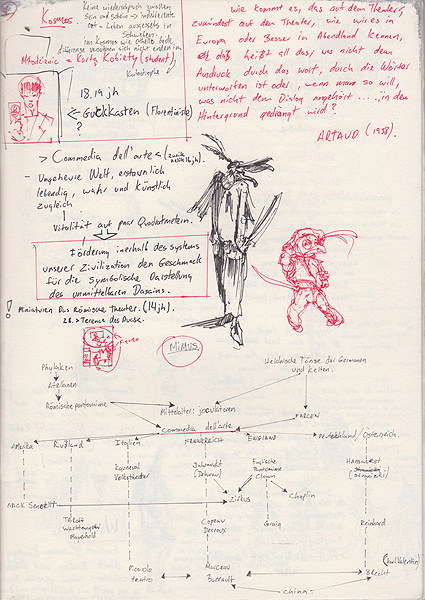 Kosmos.
Keine wiedersprüch zwischen
Sein und Schein → Indifferente
ort – Leben ausgesetz in
Schweben:
im Kosmos wie Masse beide
Katastrophe
18.19 jh
→ Guckkasten (Florentinische)
?
wie kommt es, das auf dem Theater,
zumindest auf dem Theater, wie wir es in
Europa oder Besser im Abendland kennen,
daß heißt all das, was nicht dem
Ausdruck durch das wort, durch die Wörter
unterworfen ist oder, wenn man so will,
was nicht dem Dialog angehört ...., in den
Hintergrund gedrängt wird?
ARTAUD (1938).
> Commedia dell'arte <
- Ungeheure Welt, erstaunlich
lebendig, wahr und künstlich
zugleich
Vitalität auf paar Quadratmetern.
Förderung inerhalb des systems
unserer Zivilization den Geschmack
für die symbolische Darstellung
des unmittelbaren Daseins.
! Miniaturen Das Römische Theater. (14jh.)
28. > Terence des Ducs.
Mimus.
Phlyaken
Atellanen
Römische pantomime
Heidnische Tänze der Germanen
und Kelten.
Mittelalter: joculatoren
FARCEN
Commedia dell'arte
Amerika
Rußland
Italien
FRANKREICH
ENGLAND
Deutschland/Österreich.
Karneval
Volkstheater
Jahrmarkt
(Deburau)
Englische
Pantomime
Clown
Hanswurst
Mack Senett
Zirkus
Chaplin
Tairoff
Wachtangow
Meyerhold
Copeau
Decroux
Craig
Reinhard
Piccolo
teatro
Marceau
Barrault
Brecht
(Karl Valentin)
China